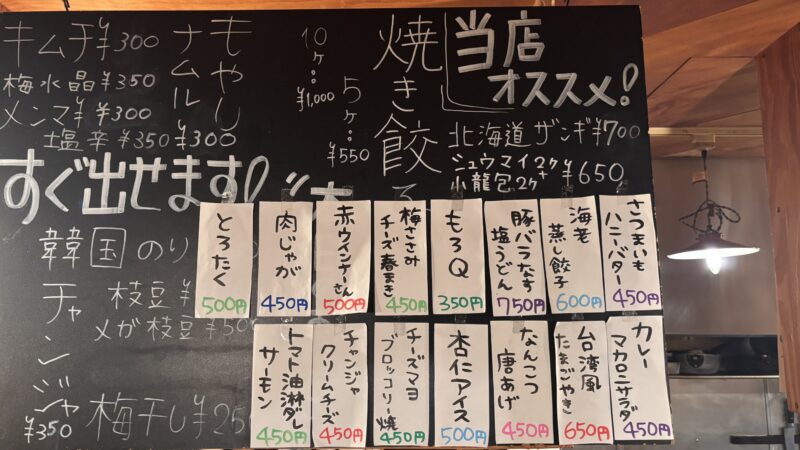 当店
オススメ!
北海道ザンギ¥700
シュウマイ2ケ+
小龍包2ケ
¥650
焼き餃
5ケ…
¥550
10ケ…
¥1,000
もやし
ナムル
¥300
キムチ¥300
梅水晶¥350
メンマ¥300
塩辛¥350
すぐ出せます!
韓国のり
枝豆¥
メガ枝豆¥50
チャンジャ
¥350
梅干し¥250
さつまいも
ハニーバター
450円
海老
蒸し餃子
600円
豚バラなす
塩うどん
750円
もろQ
350円
梅ささみ
チーズ春まき
450円
赤ウインナーさん
500円
肉じゃが
450円
とろたく
500円
カレー
マカロニサラダ
450円
台湾風
たまごやき
650円
なんこつ
唐あげ
450円
杏仁アイス
500円
チーズマヨ
ブロッコリー焼
450円
チャンジャ
クリームチーズ
450円
トマト油淋ダレ
サーモン
450円